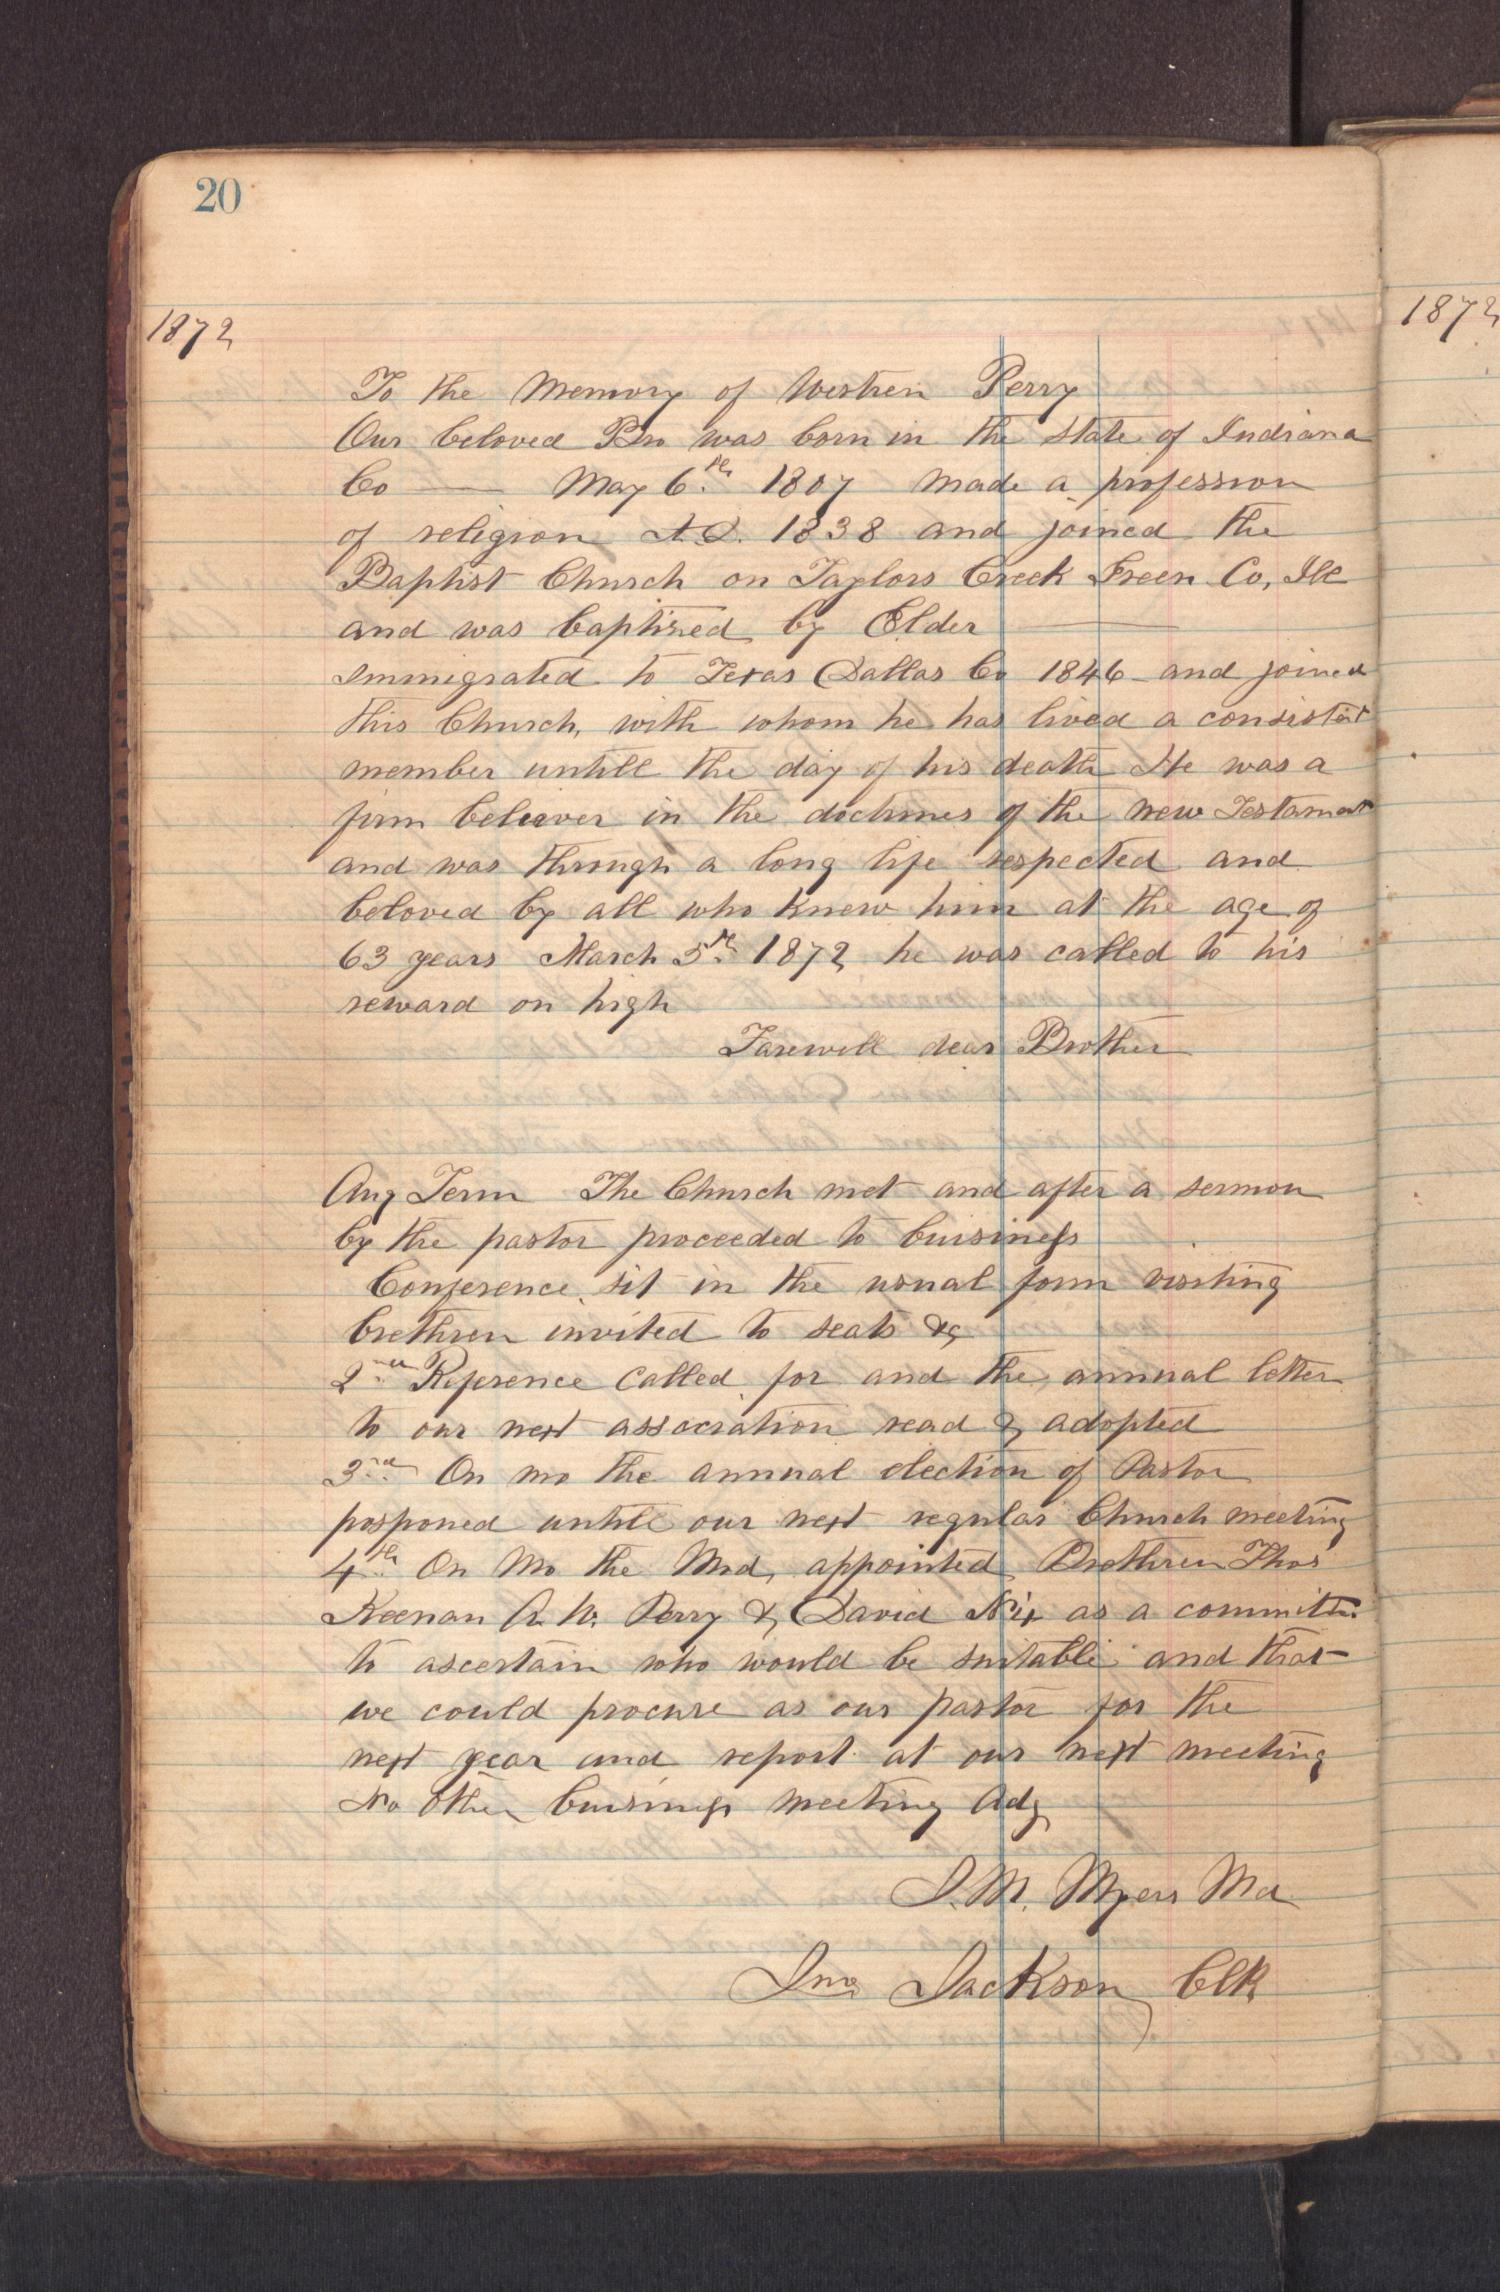 20
1872
To the Memory of Western Perry
Our beloved Bro was born in the state of Indiana
Co — May 6th 1807 made a profession
of religion A.D. 1838 and joined the
Baptist Church on Taylors Creek Green Co, Ill
and was baptised by Elder —
Immigrated to Texas Dallas Co 1846 and joined
this Church, with whom he has lived a consistent
member untill the day of his death He was a
firm beleaver in the doctrines of the new Testament
and was through a long life respected and
beloved by all who knew him at the age of
63 years March 5th 1872 he was called to his
reward on high
Farewell dear Brother
Aug Term The Church met and after a sermon
by the pastor proceeded to buisiness
Conference sit in the usual form visiting
brethren invited to seats &c
2nd Reference called for and the annual letter
to our next association read & adopted
3rd On mo the annual election of Pastor
posponed untill our next regular Church meeting
4th On Mo the Mod, appointed Brethren Thos
Keenan A. W. Perry & David Nix as a committee
to ascertain who would be suitable and that
we could procure as our pastor for the
next year and report at our next meeting
No other buisiness meeting Adj
J. M. Myers Md
Jno Jackson Clk
1872